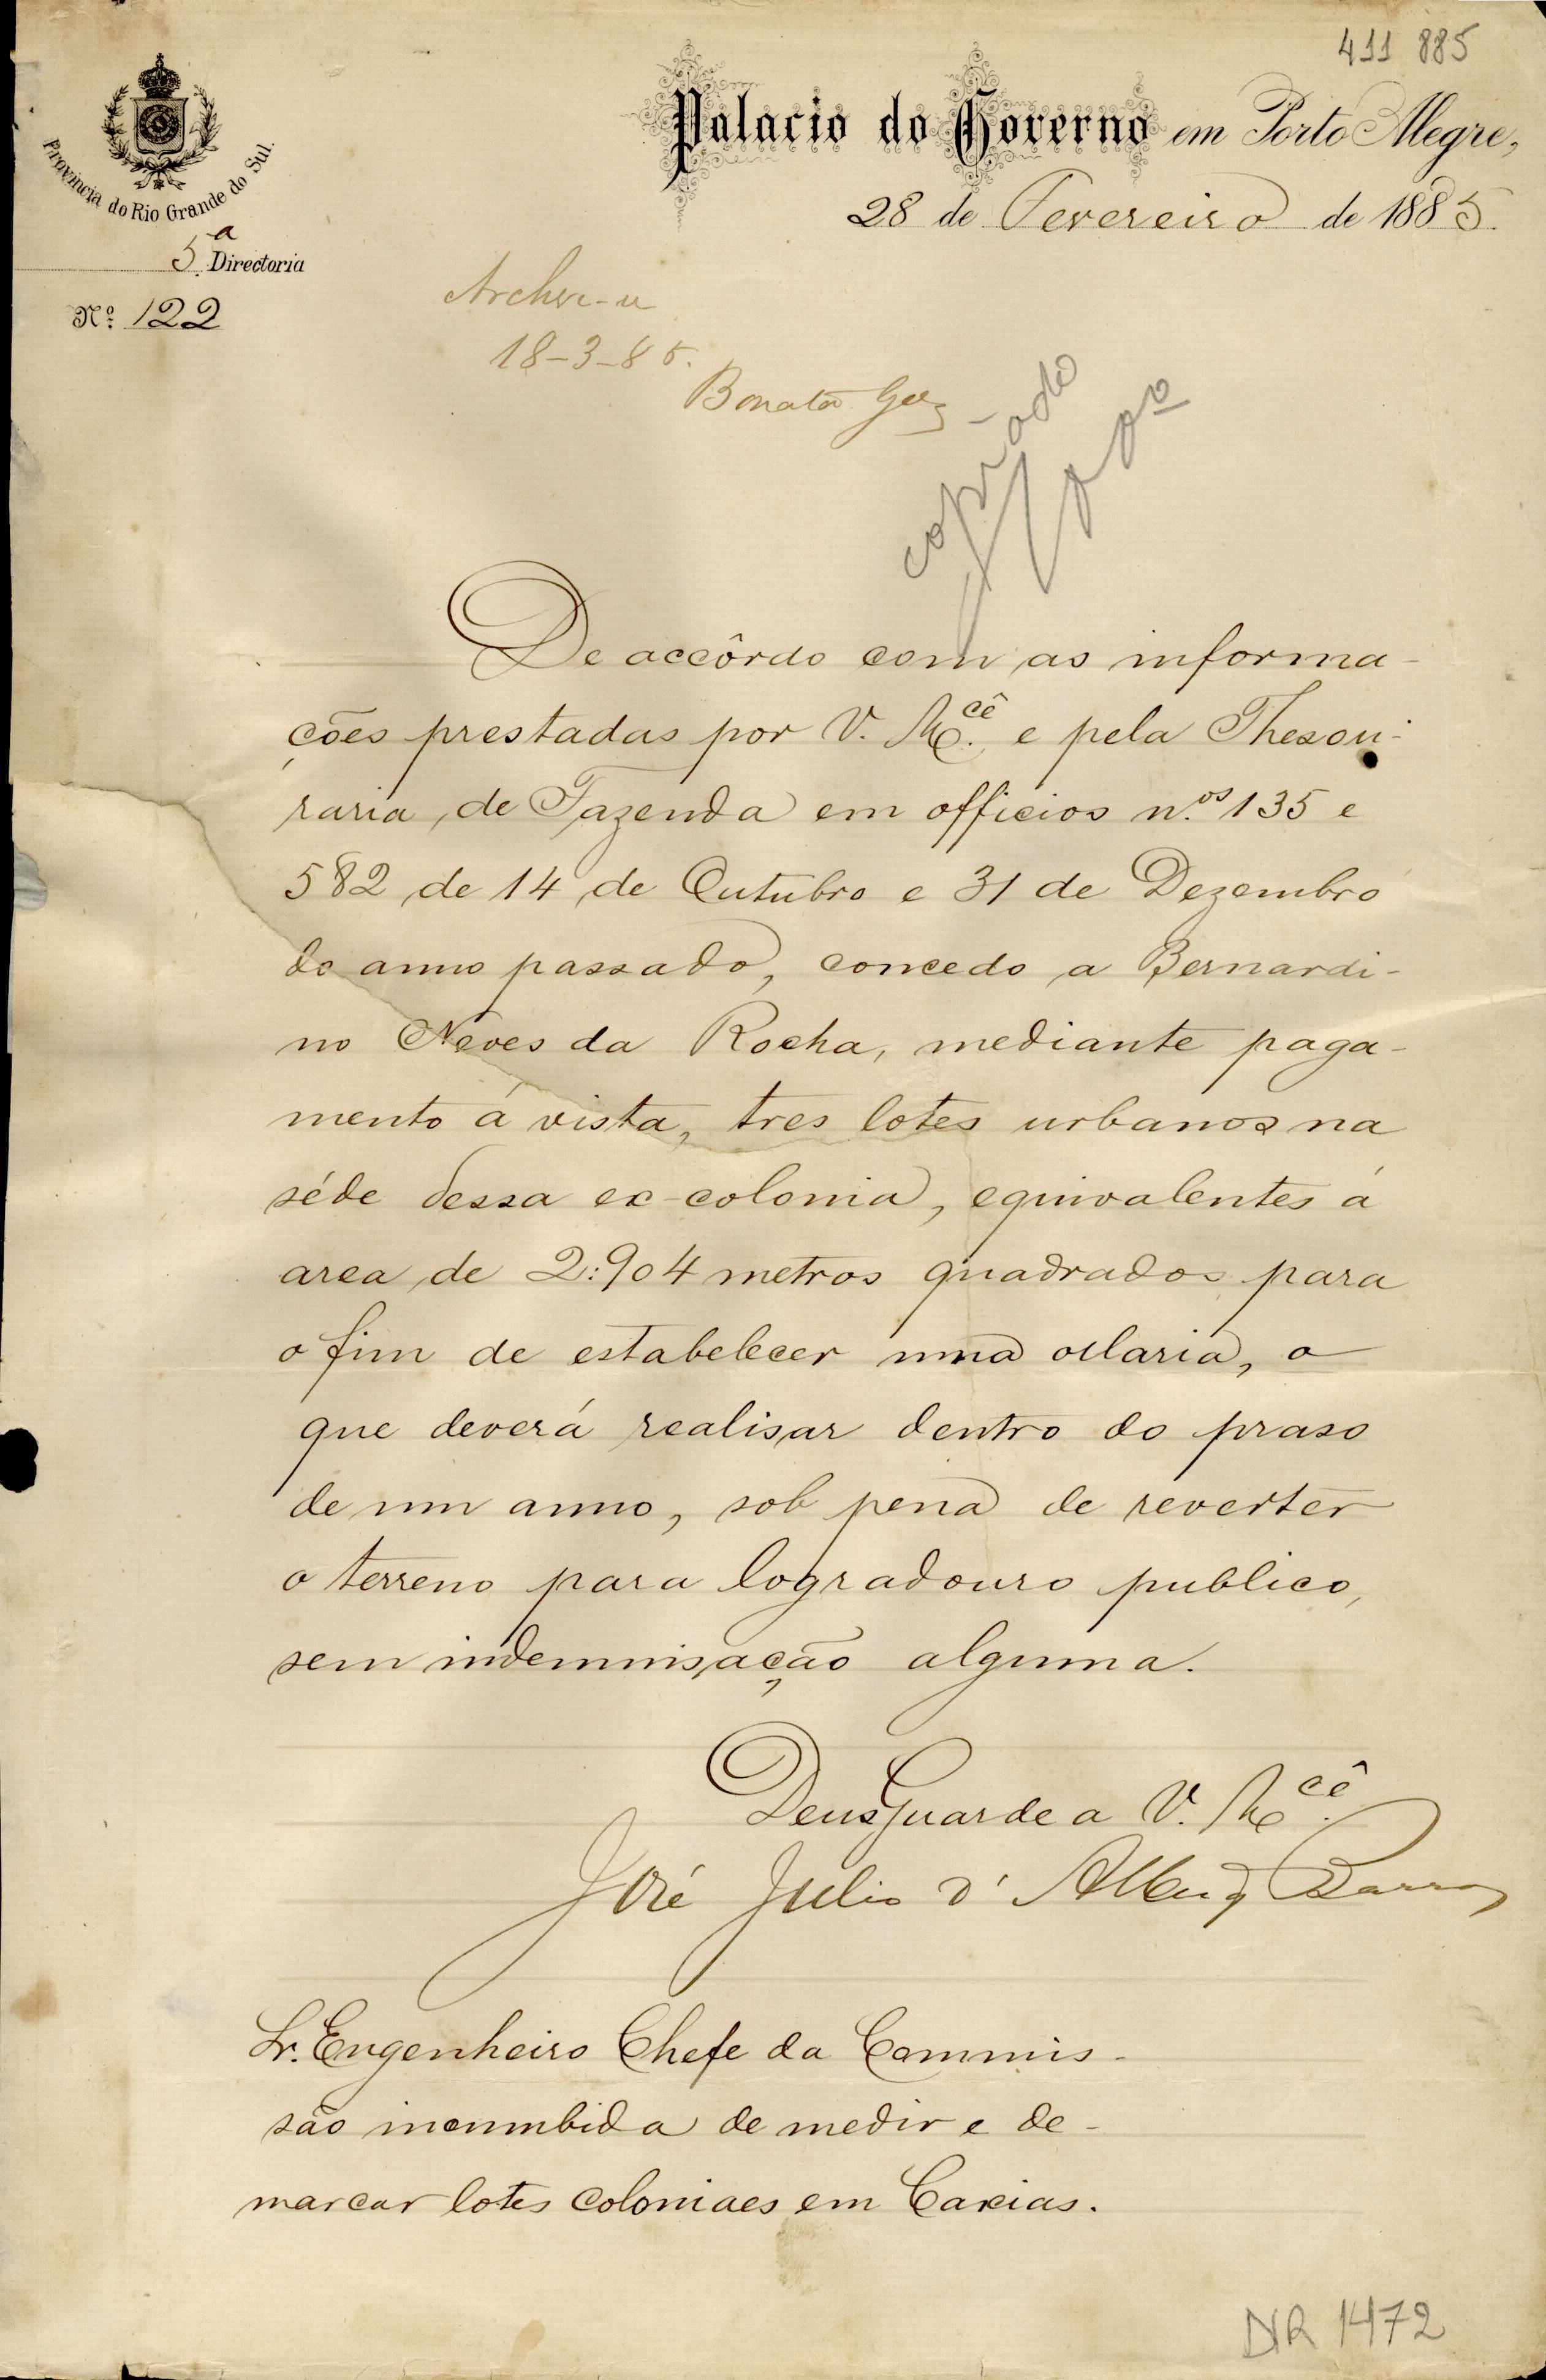 411 885
Palacio do Governo em Porto Alegre,
28 de Fevereiro de 1885.
Provincia do Rio Grande do Sul.
5.ª Directoria
Nº 122
Archive-se
18-3-85.
copiado
De accôrdo com as informa-
ções prestadas por V. M.cê e pela Thesou-
raria de Fazenda em officios n.os 135 e
582 de 14 de Outubro e 31 de Dezembro
do anno passado, concedo a Bernardi-
no Neves da Rocha, mediante paga-
mento á vista, tres lotes urbanos na
séde dessa ex-colonia, equivalentes á
area de 2:904 metros quadrados para
o fim de estabelecer uma olaria, o
que deverá realisar dentro do praso
de um anno, sob pena de reverter
o terreno para logradouro publico,
sem indemnisação alguma.
Deus Guarde a V. M.cê
José Julio d'Albuq Barros
Sr. Engenheiro Chefe da Commis-
são incumbida de medir e de-
marcar lotes coloniaes em Caxias.
DNR 1472